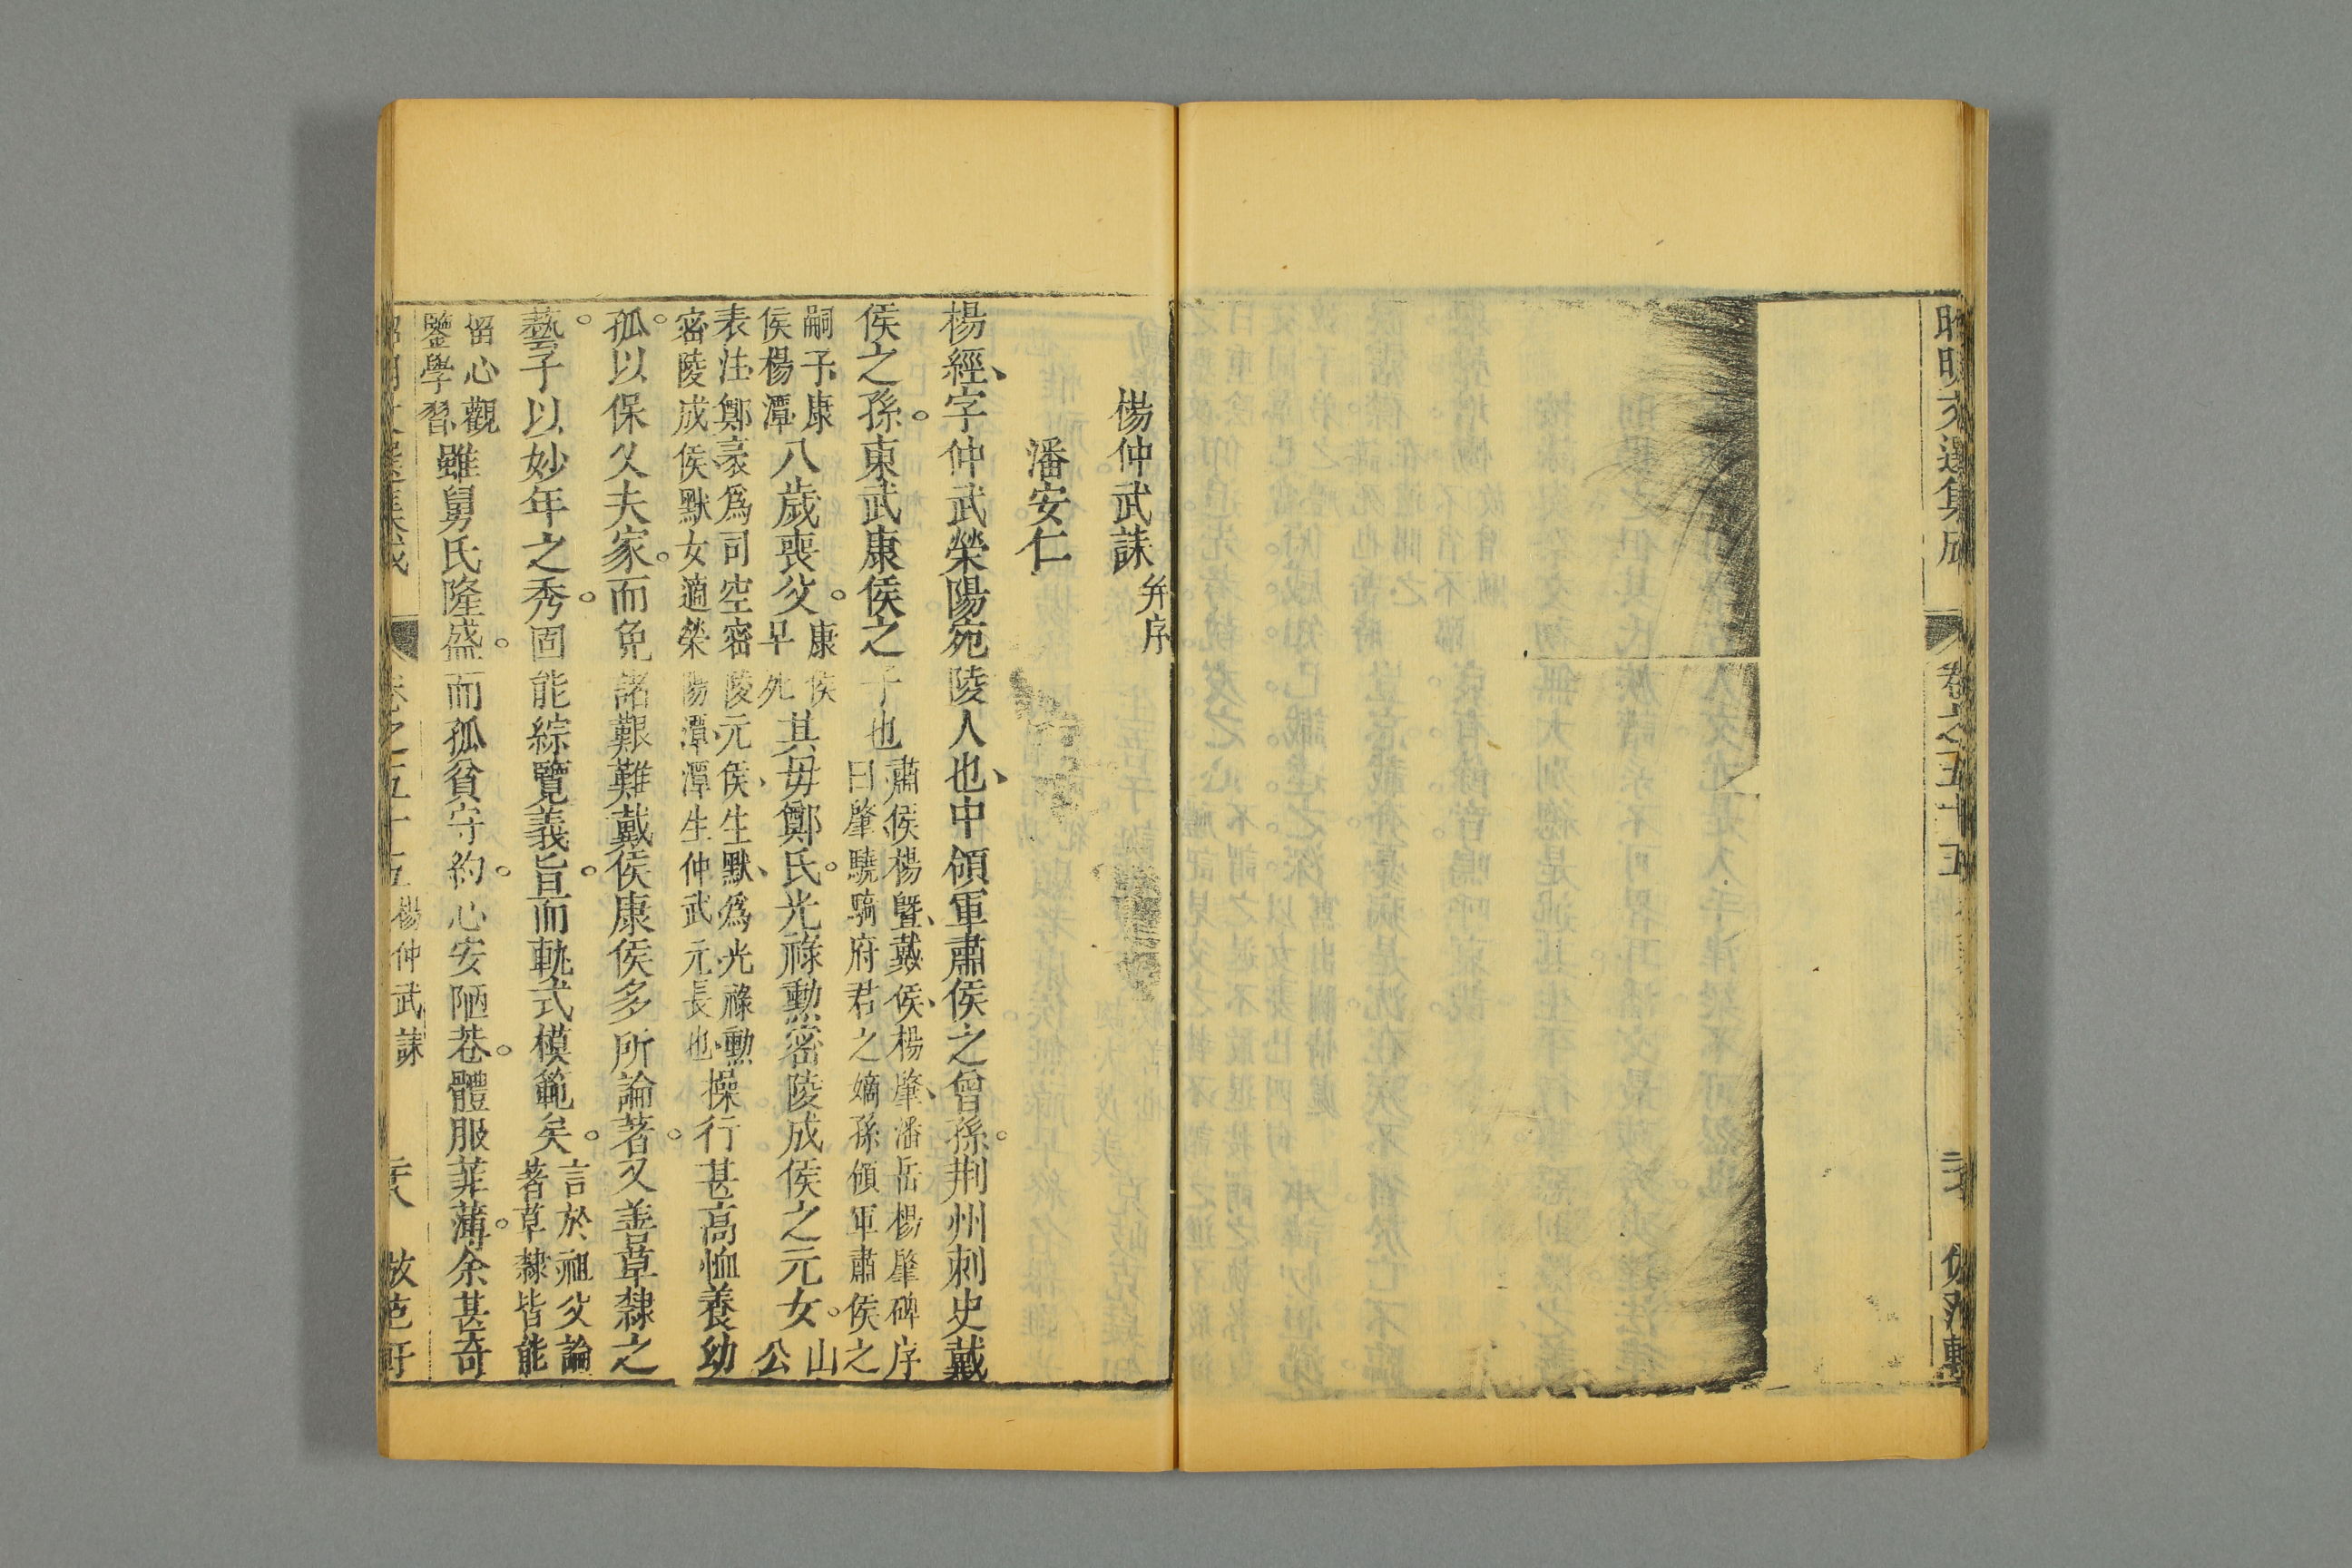 昭明文選集成 卷之五十五
楊仲武誄 并序
潘安仁
楊經字仲武榮陽宛陵人也中領軍肅侯之曾孫荆州刺史戴
侯之孫東武康侯之子也
肅侯楊曁戴侯楊肇潘岳楊肇碑序
曰肇驍騎府君之嫡孫領軍肅侯之
嗣子康
侯楊潭
八歲喪父
康侯
早死
其母鄭氏光祿勳密陵成侯之元女
山
公
表注鄭袤爲司空密陵元侯生默爲光祿勳
密陵成侯默女適榮陽潭潭生仲武元長也
操行甚高恤養幼
孤以保乂夫家而免諸艱難戴侯康侯多所論著又善草隸之
藝子以妙年之秀固能綜覽義旨而軌式模範矣
言於祖父論
著草隸皆能
留心觀
鑒學習
雖舅氏隆盛而孤貧守約心安陋巷體服菲薄余甚奇
卷之五十五 楊仲武誄